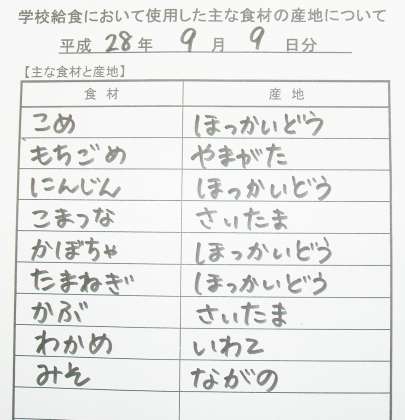 学校給食において使用した主な食材の産地について
平成 28 年 9 月 9 日分
【主な食材と産地】
食材 産地
こめ ほっかいどう
もちごめ やまがた
にんじん ほっかいどう
こまつな さいたま
かぼちゃ ほっかいどう
たまねぎ ほっかいどう
かぶ さいたま
わかめ いわて
みそ ながの